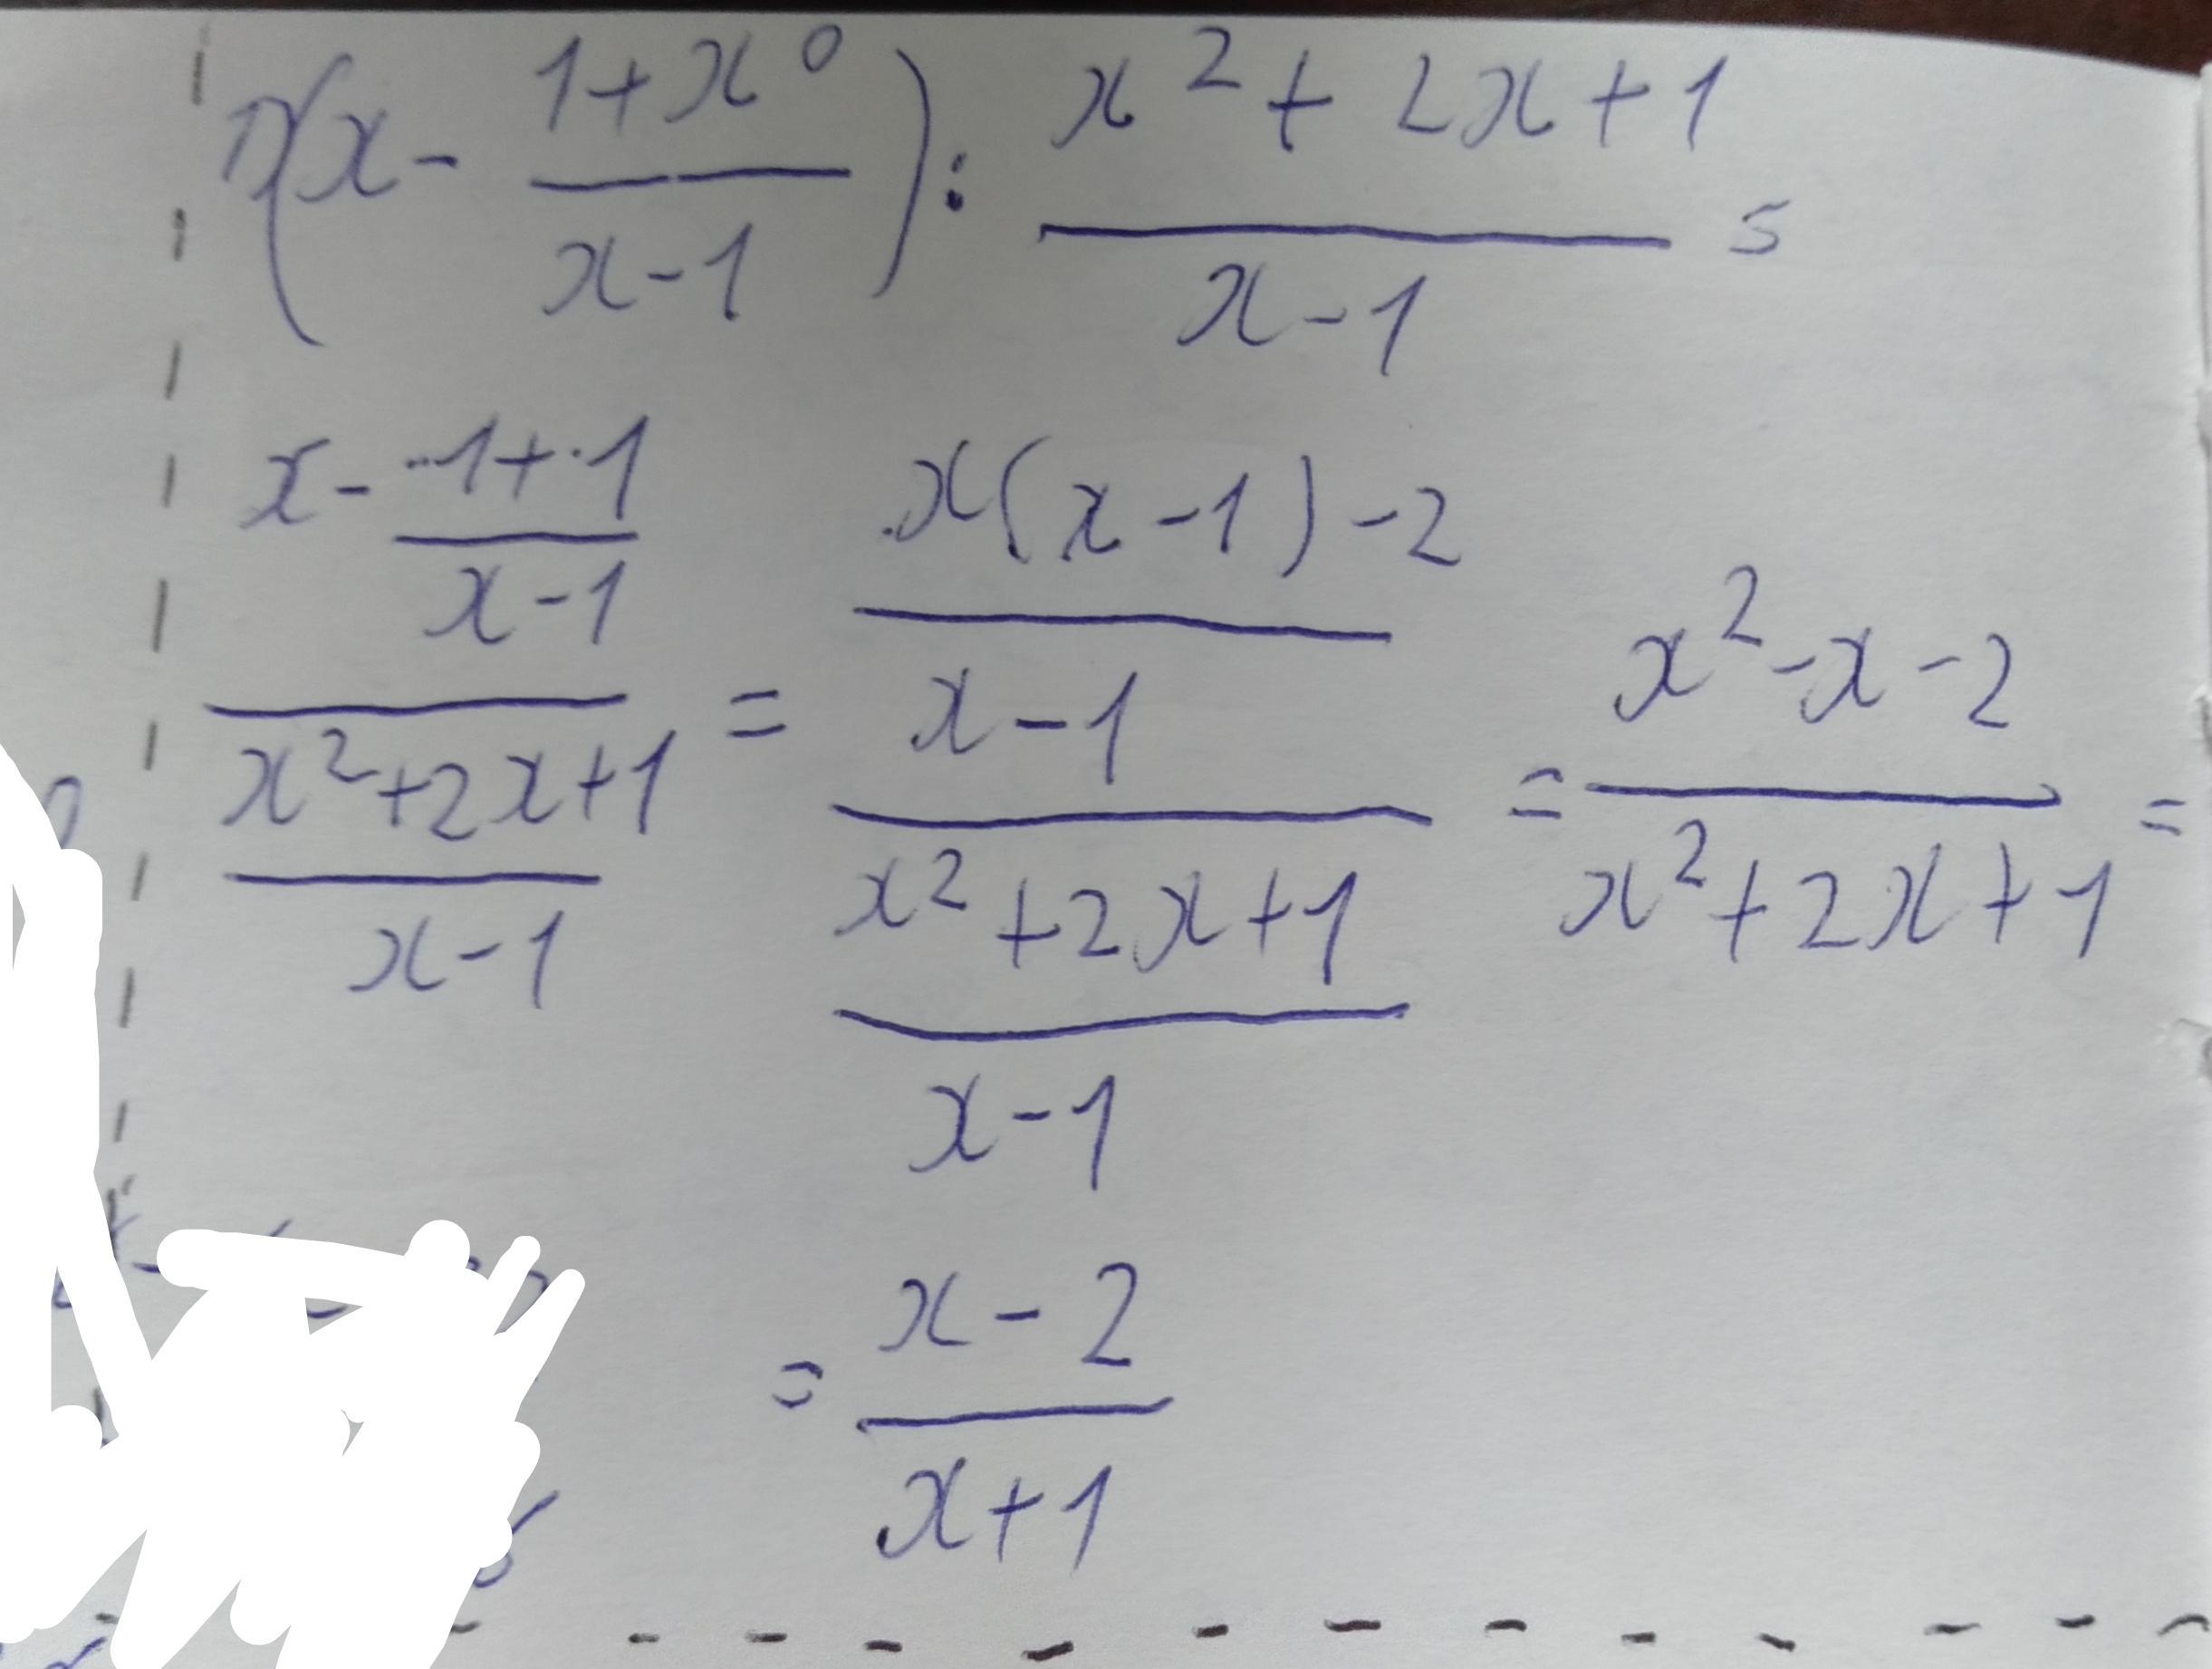 1) (x - (1+x⁰)/(x-1)) : (x²+2x+1)/(x-1) =
(x - (1+1)/(x-1))/((x²+2x+1)/(x-1)) = ((x(x-1)-2)/(x-1))/((x²+2x+1)/(x-1)) = (x²-x-2)/(x²+2x+1) =
= (x-2)/(x+1)